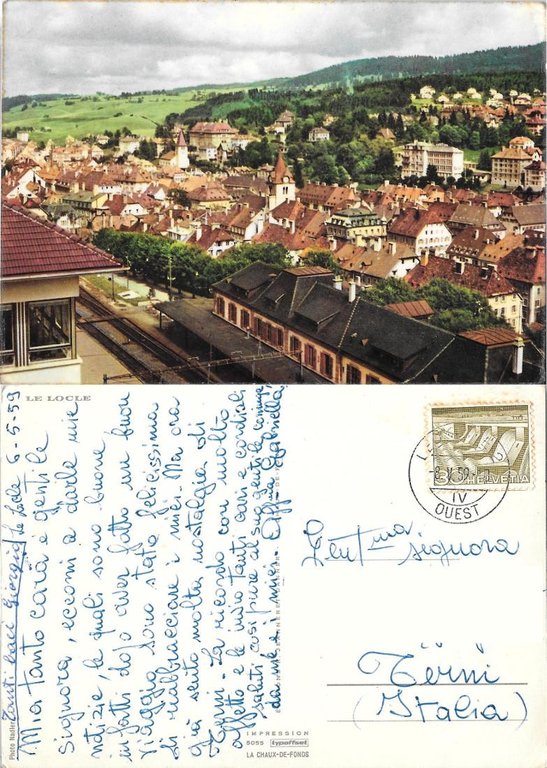 LE LOCLE
Tanti baci Giorgio
Le Locle 6-5-59
Mia tanto cara e gentile
Signora, eccomi a darle mie
notizie, le quali sono buone
infatti dopo aver fatto un buon
viaggio sono stata felicissima
di riabbracciare i miei. Ma ora
già sento molta nostalgia di
Terni - La ricordo con molto
affetto e le invio tanti cari e cordiali
saluti così pure al suo gentile coniuge
da me e i miei. Aff. Gabriella
Photo Nadler
IMPRESSION
5055 typoffset
LA CHAUX-DE-FONDS
HELVETIA
-8.V.59.
IV
OUEST
Gent.ma
signora
Terni
(Italia)